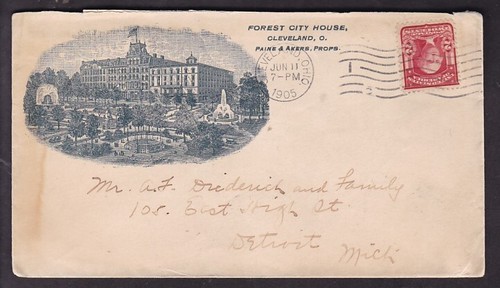 FOREST CITY HOUSE,
CLEVELAND, O.
PAINE & AKERS, PROPS.
CLEVELAND, OHIO.
JUN 11
7-PM
1905
Mr. A. F. Diederich and Family
108. East High St
Detroit Mich